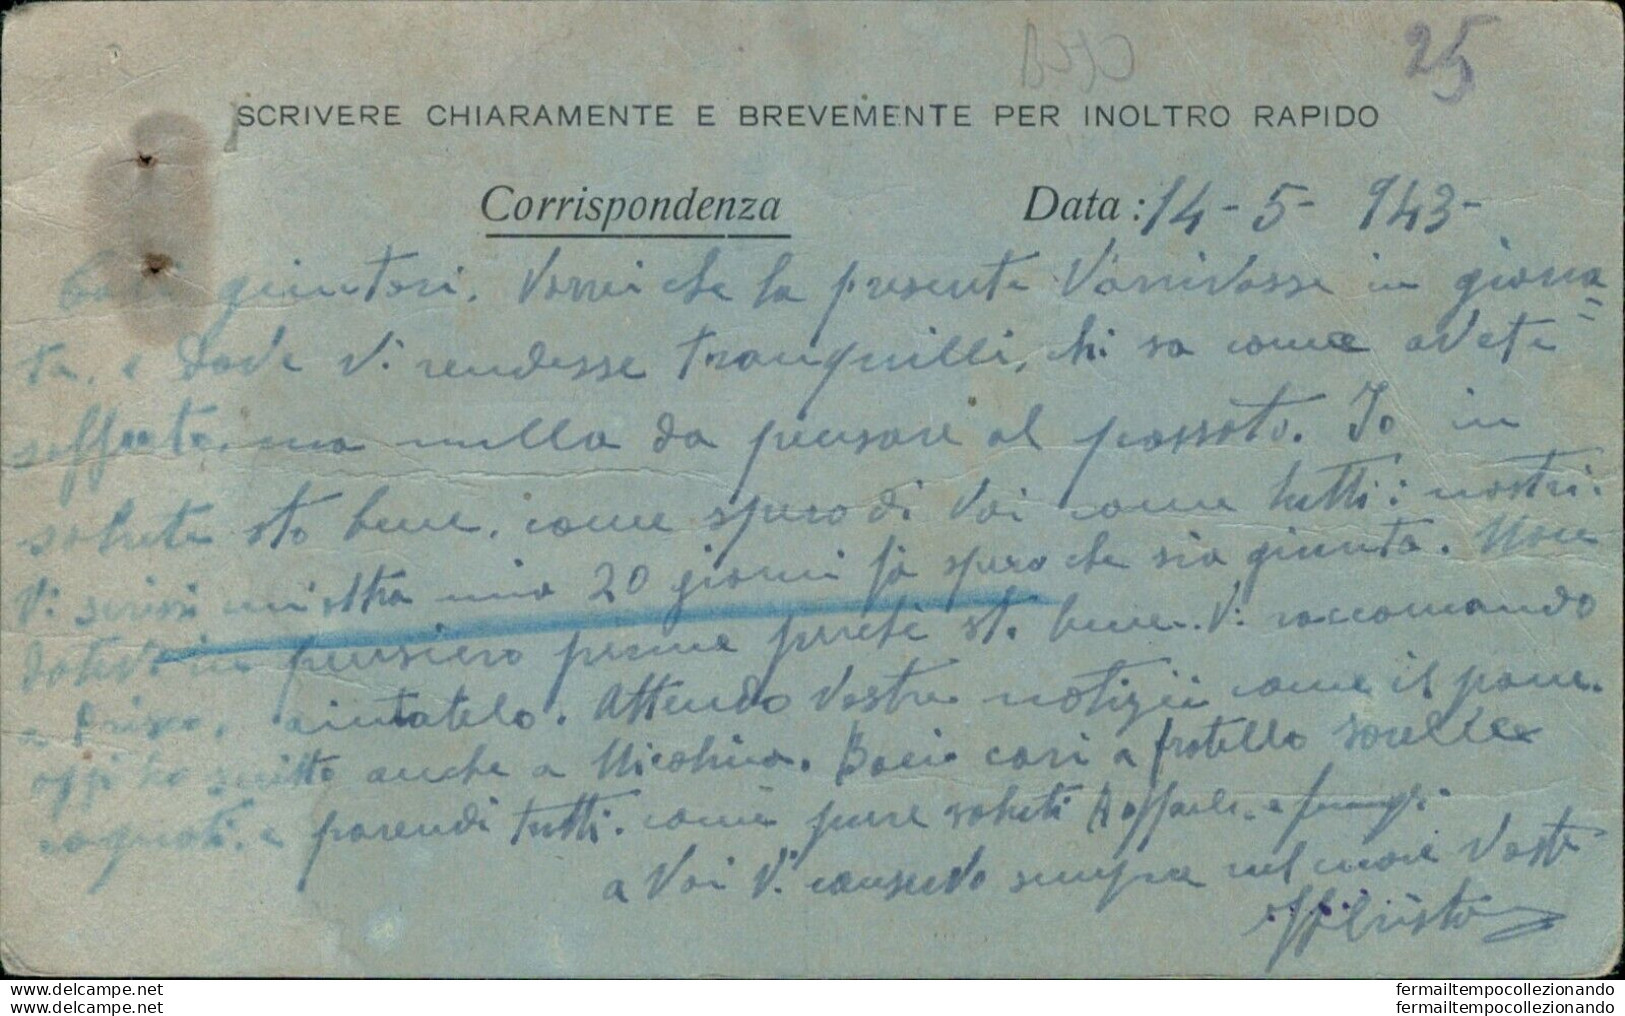 25
SCRIVERE CHIARAMENTE E BREVEMENTE PER INOLTRO RAPIDO
Corrispondenza Data: 14-5-943-
Cari genitori. Vorrei che la presente V'arrivasse in giorna=
ta, e dove Vi rendesse tranquilli, chi sa come avete
sofferto, ma nulla da pensare al passato. Io in
salute sto bene, come spero di Voi come tutti i nostri.
Vi scrissi un'altra mia 20 giorni fà spero che sia giunta. Non
datevi in pensiero per me perché sto bene. Vi raccomando
a aiutatelo. Attendo vostre notizie come il pane.
oggi ho scritto anche a Nicolina. Baci cari a fratello sorelle
cognati. e parendi tutti. come pure saluti Raffaele e
a Voi Vi conservo sempre nel cuore Vostro
fermailtempocollezionando
fermailtempocollezionando
fermailtempocollezionando
fermailtempocollezionando